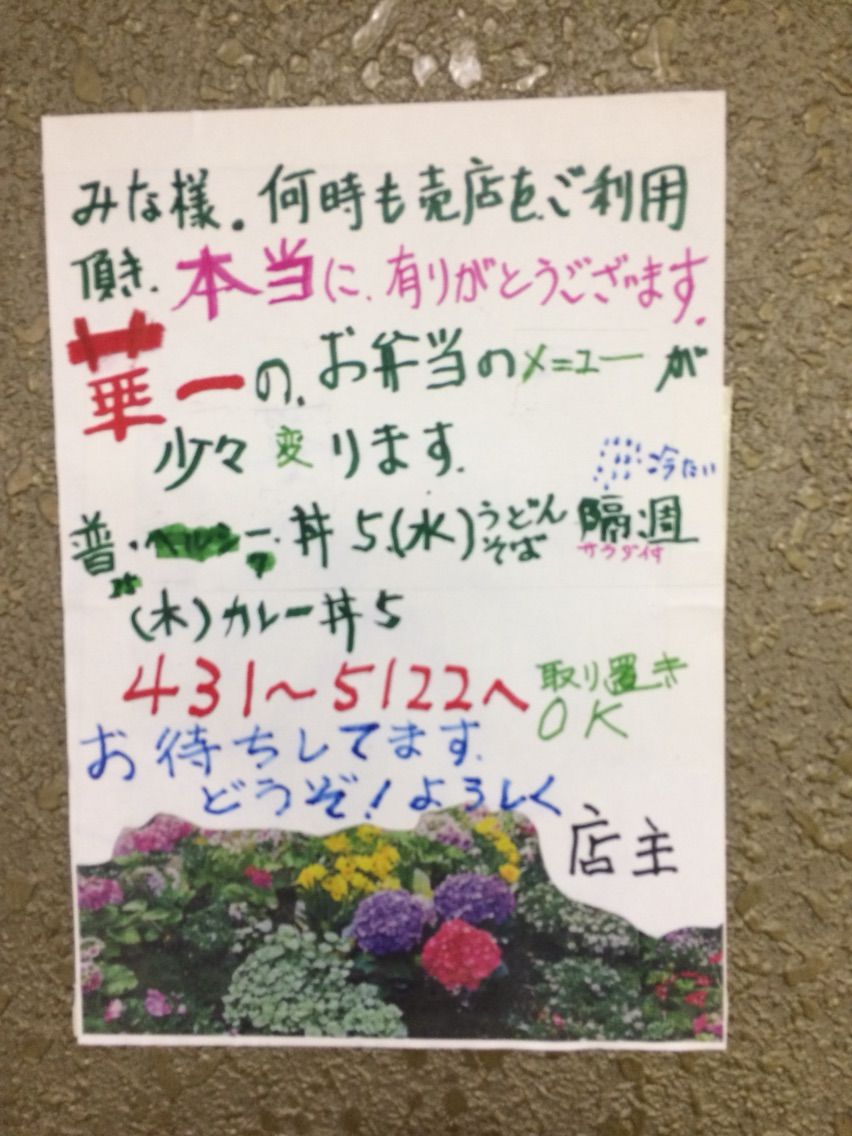 みな様。何時も売店を、ご利用
頂き、本当に、有りがとうございます。
華一の、お弁当のメニューが
少々変ります。
冷たい
普・ヘルシー・丼5、(水)うどんそば 隔週
サラダ付
(木)カレー丼5
431〜5122へ 取り置き
OK
お待ちしてます。
どうぞ!よろしく
店主